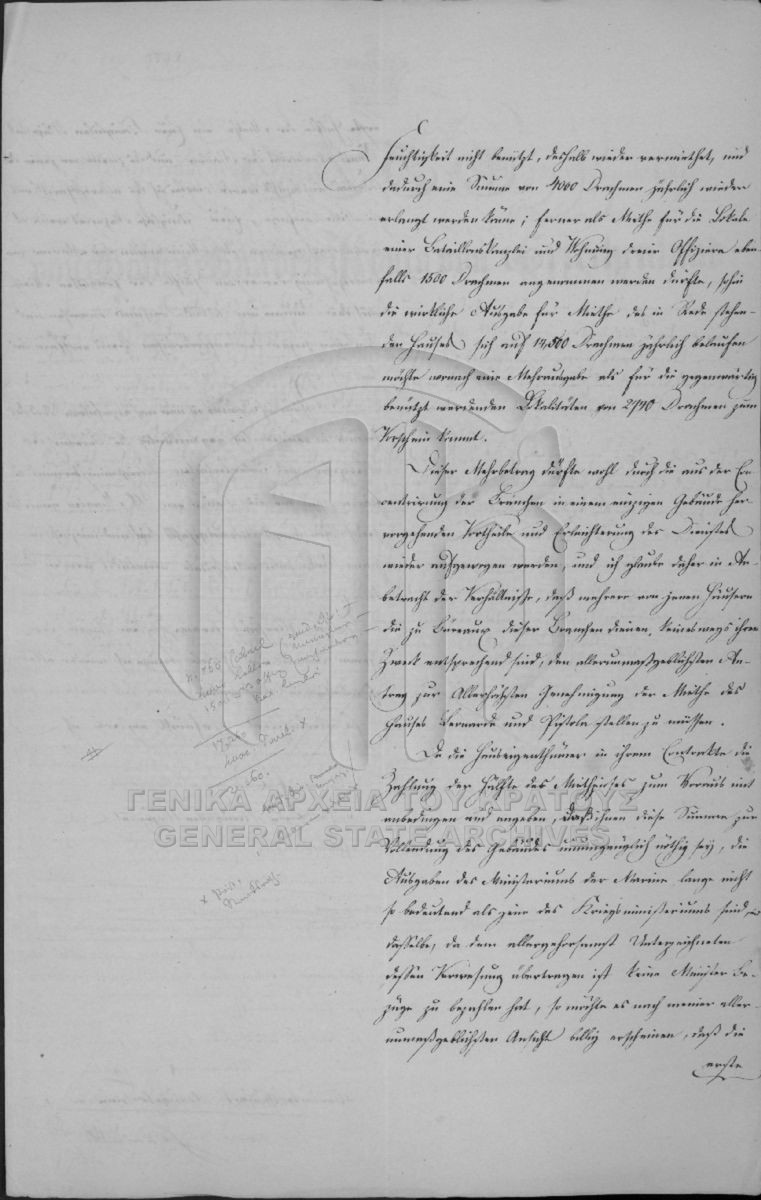 Feuchtigkeit nicht benützt, deshalb wieder vermiethet, und
dadurch eine Summe von 4000 Drachmen jährlich wieder
erlangt werden könne; ferner als Miethe für die Lokale
einer Bataillonskanzlei und Wohnung dreier Offiziere eben-
falls 1500 Drachmen angenommen werden dürfte, sohin
die wirkliche Ausgabe für Miethe des in Rede stehen-
den Hauses sich auf 14,500 Drachmen jährlich belaufen
möchte wonach eine Mehrausgabe als für die gegenwärtig
benützt werdenden Lokalitäten von 2140 Drachmen zum
Vorschein kommt.
Dieser Mehrbetrag dürfte wohl durch die aus der Con-
centrirung der Branchen in einem einzigen Gebäude her-
vorgehenden Vortheile und Erleichterung des Dienstes
wieder aufgewogen werden, und ich glaube daher in An-
betracht der Verhältnisse, daß mehrere von jenen Häusern
die zu Büreaux dieser Branchen dienen, keineswegs ihrem
Zweck entsprechend sind, den allerunmaßgeblichsten An-
trag zur Allerhöchsten Genehmigung der Miethe des
Hauses Bernardo und Pistola stellen zu müssen.
Da die Hauseigenthümer in ihrem Contrakte die
Zahlung der Hälfte des Miethzinses zum Voraus mit
anbedingen und angeben, daß ihnen diese Summe zur
Vollendung des Gebäudes unumgänglich nöthig sey, die
Ausgaben des Ministeriums der Marine lange nicht
so bedeutend als jene des Kriegsministeriums sind,
dasselbe, da dem allergehorsamst Unterzeichneten
dessen Verwesung übertragen ist keine Minister Be-
züge zu bezahlen hat, so möchte es nach meiner aller-
unmaßgeblichsten Ansicht billig erscheinen, daß die
erste
ΓΕΝΙΚΑ ΑΡΧΕΙΑ ΤΟΥ ΚΡΑΤΟΥΣ
GENERAL STATE ARCHIVES